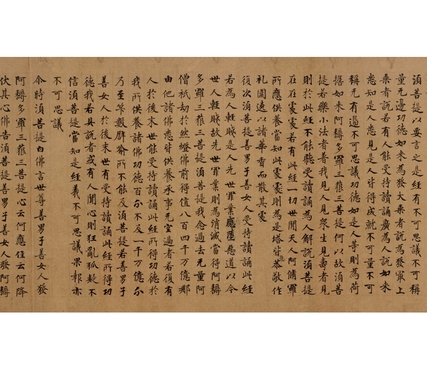 須菩提以要言之是經有不可思議不可稱
量无邊功德如來為發大乘者說為發冣上
乘者說若有人能受持讀誦廣為人說如來
悉知是人悉見是人皆得成就不可量不可
稱无有邊不可思議功德如是人等則為荷
擔如來阿耨多羅三藐三菩提何以故須菩
提若樂小法者著我見人見眾生見壽者見
則於此經不能聽受讀誦為人解說須菩提
在在處處若有此經一切世間天人阿脩羅
所應供養當知此處則為是塔皆應恭敬作
禮圍遶以諸華香而散其處
復次須菩提善男子善女人受持讀誦此經
若為人輕賤是人先世罪業應墮惡道以今
世人輕賤故先世罪業則為消滅當得阿耨
多羅三藐三菩提須菩提我念過去无量阿
僧祇劫於然燈佛前得值八百四千万億那
由他諸佛悉皆供養承事无空過者若復有
人於後末世能受持讀誦此經所得功德於
我所供養諸佛功德百分不及一千万億分
乃至筭數譬喻所不能及須菩提若善男子
善女人於後末世有受持讀誦此經所得功
德我若具說者或有人聞心則狂亂狐疑不
信須菩提當知是經義不可思議果報亦
不可思議
尒時須菩提白佛言世尊善男子善女人發
阿耨多羅三藐三菩提心云何應住云何降
伏其心佛告須菩提善男子善女人發阿耨